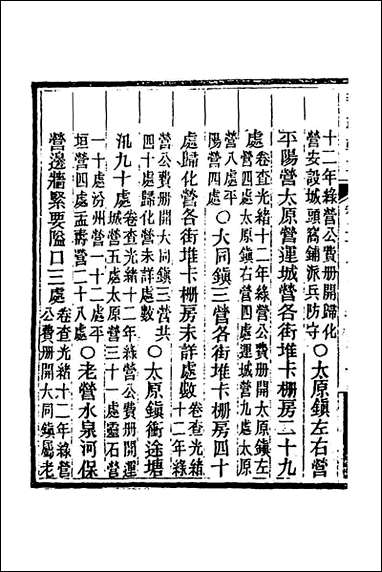 十二年綠營公費册開歸化
營安設城頭窩鋪派兵防守
○太原鎮左右營
平陽營太原營運城營各街堆卡柵房二十九
處
卷查光緒十二年綠營公費册開太原鎮左
營四處太原鎮右營四處運城營九處太原
營八處平
陽營四處
○大同鎮三營各街堆卡柵房四十
處歸化營各街堆卡柵房未詳處數
卷查光緒
十二年綠
營公費册開大同鎮三營共
四十處歸化營未詳處數
○太原鎮衝途塘
汛九十處
卷查光緒十二年綠營公費册開運
城營五處太原營三十一處靈石營
一十處汾州營一十二處平
垣營四處盂壽營二十八處
○老營水泉河保
營邊牆緊要隘口三處
卷查光緒十二年綠營
公費册開大同鎮屬老